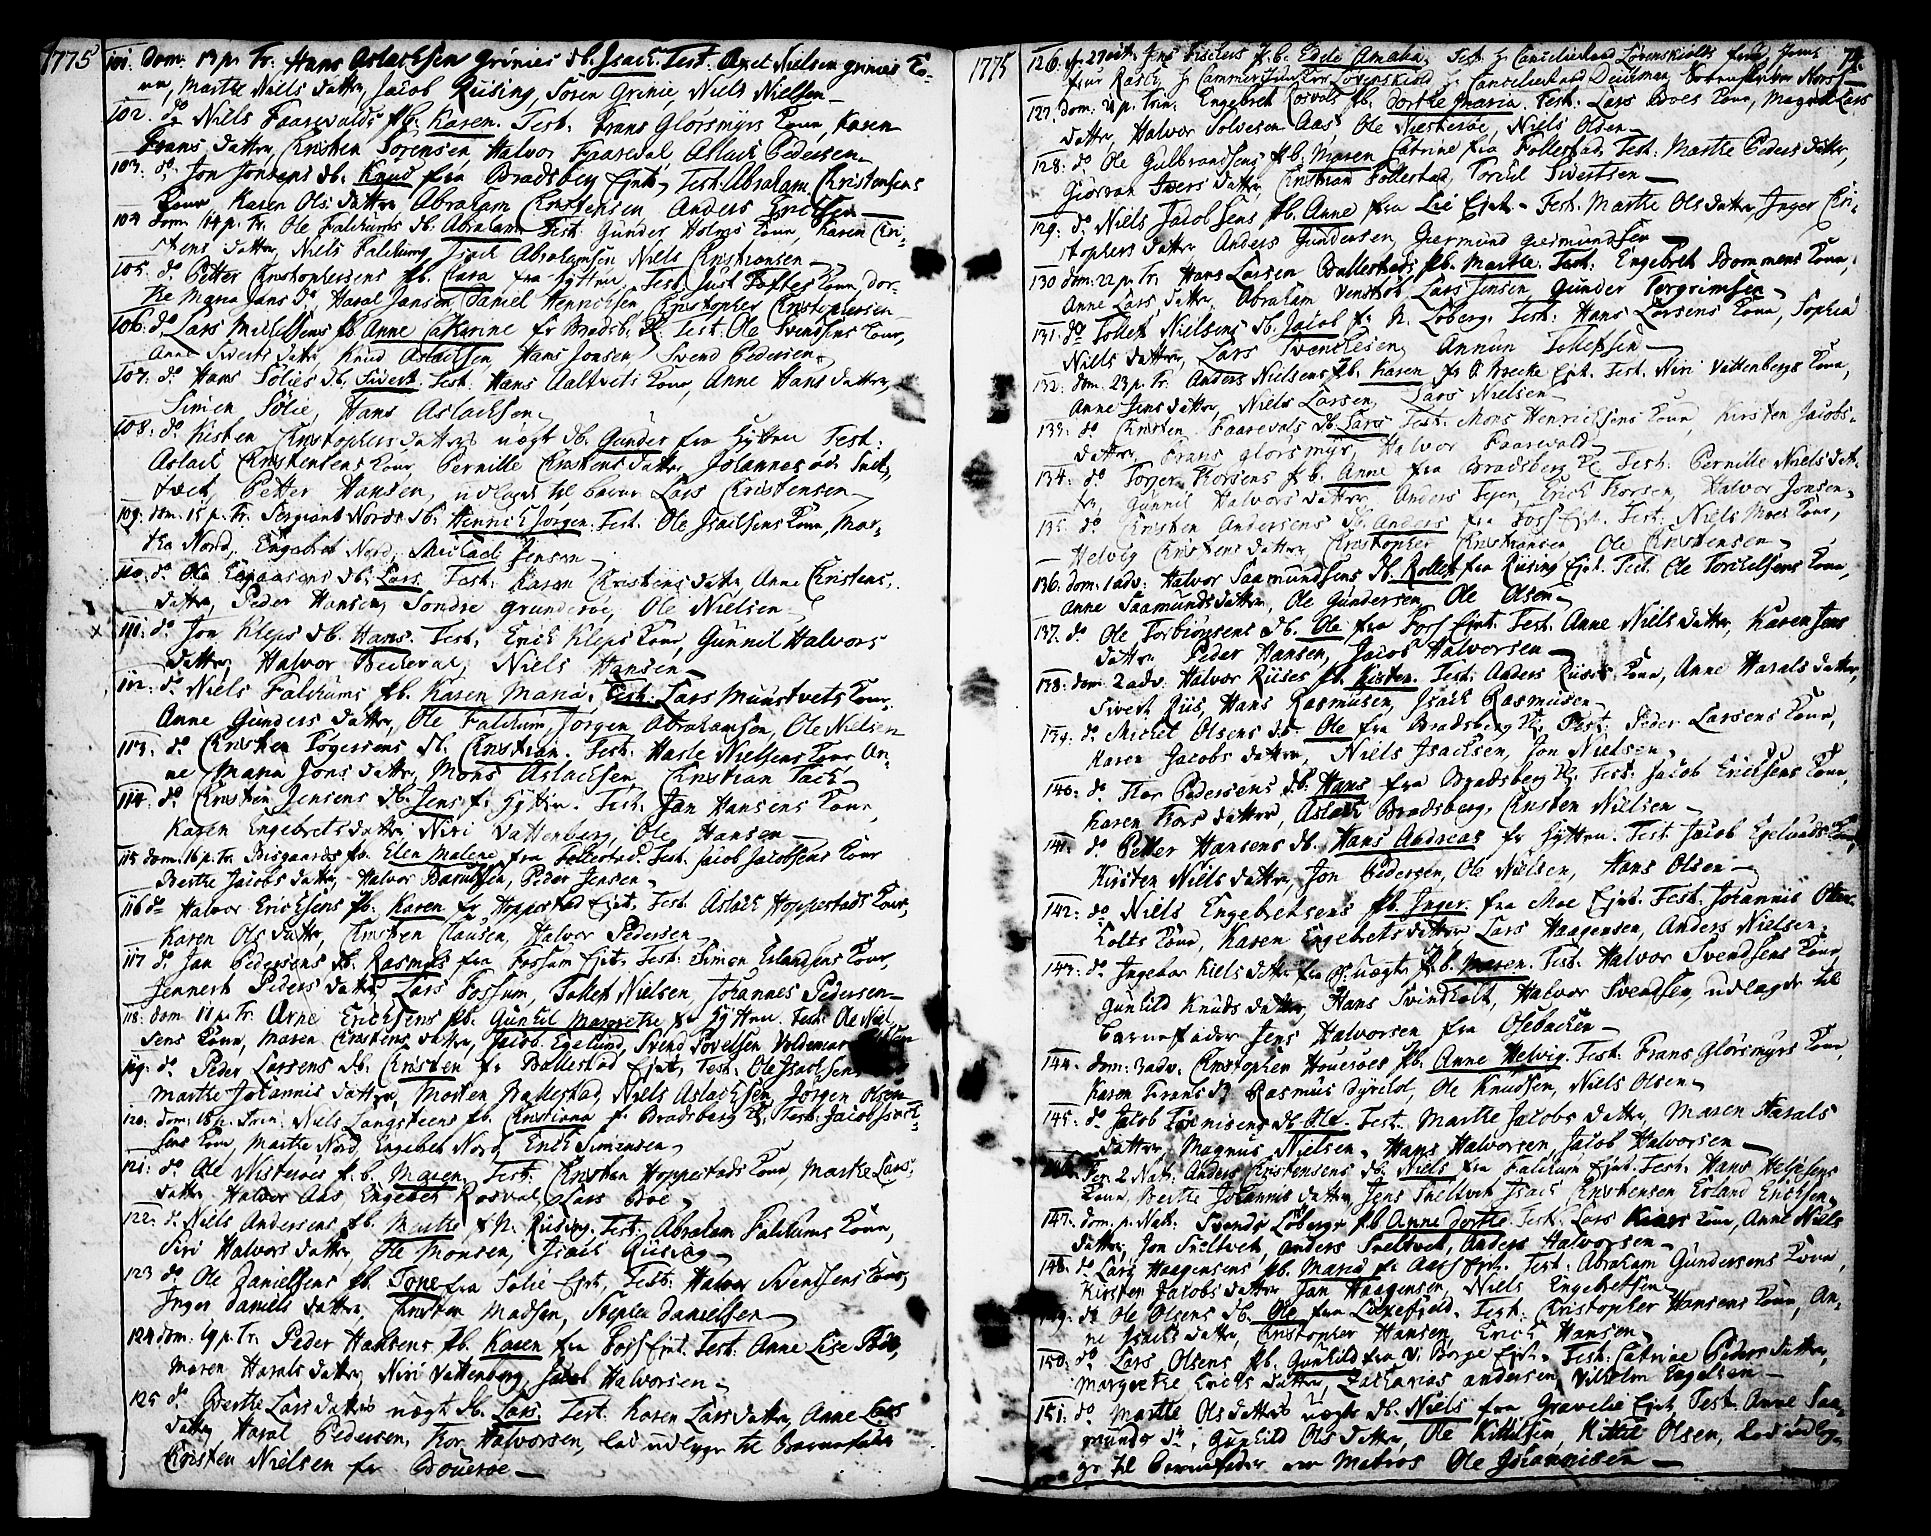 1775
101. Dom. 13 p. Tr. Hans Aslachsen Grinies db. Isach. Test. Axel Nielsen Grinies Ko-
ne, Marthe Niels datter, Jacob Riising, Sören Grinie, Niels Nielsen
102. do Niels Faarevalds fb. Karen. Test: Frans Glörsmyrs Kone, Karen
Frans datter, Christen Sörensen, Halvor Faareval, Aslach Pedersen
103. do Jon Jonsens db. Knud fra Bradsberg Ejet, Test: Abraham Christensens
Kone, Karen Ols datter, Abraham Christensen, Anders Erichsen
104 Dom. 14 p. Tr. Ole Falchums db. Abraham Test: Gunder Holms Kone, Karen Chri-
stens datter, Niels Falchum, Isach Abrahamsen, Niels Christiansen
105. do Petter Christophersens fb. Clara fra Hytten. Test. Just Toftes Kone, Dor-
the Maria Jans dr, Haral Jansen, Daniel Henrichsen, Christopher Christophersen
106. do Lars Michelsens fb Anne Catharine fr Bradsb. Test. Ole Svendsens Kone,
Anne Siverts datr, Knud Aslachsen, Hans Jonsen, Svend Pedersen
107. do Hans Sölies db. Sivert. Test. Hans Aaltvets Kone, Anne Hans datter,
Simen Sölie, Hans Aslachsen
108. do Kisten Christophers datters uægt db. Gunder fra Hytten Test:
Aslach Christensens Kone, Pernille Christens datter, Johannes
tvet, Petter Hansen, udlagt til barnef. Lars Christensen
109. Dom. 15 p. Tr. Sergiant Nords db. Henrich Jörgen. Test. Ole Isachsens Kone, Mar-
the Nord, Engebret Nord, Michael Jensen
110. do Ole db. Lars Test: Karen Christens datter, Anne Christens
datter, Peder Hansen, Sondre Grunderöe, Ole Nielsen
x 111. do Jon Kleps db. Hans. Test. Erich Kleps Kone, Gunnil Halvors
datter, Halvor Nielsen, Niels Hansen
112. do Niels Falchums fb. Karen Maria. Test: Lars Munstvets Kone,
Anne Gunders datter, Ole Falchum, Jörgen Abrahamsen, Ole Nielsen
113. do Christen Jögersens db. Christian. Test: Hasle Nielsens Kone, An-
ne Maria Jons datter, Mons Aslachsen, Christian Tach
114. do Christen Jensens db. Jens fr Hytten. Test. Jan Hansens Kone
Karen Engebrets datter, Niri Vattenberg, Ole Hansen
115 Dom. 16 p. Tr. Bisgaards fb. Elen Malene fra Follestad. Test. Jacob Jacobsens Kone
Berthe Jacobs datter, Halvor Barulfsen, Peder Jensen
116 do Halvor Erichsens fb. Karen fr Hoppestad Ejet. Test Aslach Hoppestads Kone,
Karen Ols datter, Christen Clausen, Halvor Pedersen
117 do Jan Pedersens db. Rasmus fra Fossum Ejet. Test: Simon Erlandsens Kone,
Jennert Peders datter, Lars Fossum, Tollef Nielsen, Johannes Pedersen
118. Dom. 17 p. Tr. Arne Erichsens fb. Gunhil Margrethe fr Hytten. Test. Ole Niel-
sens Kone, Maren Christens datter, Jacob Egelund, Svend Povelsen, Voldemar
119. do Peder Larsens db. Christen fr Ballestad Ejet, Test: Ole Isachsens
Marthe Johannis datter, Morten Ballestad, Niels Aslachsen, Jörgen Olsen
120. Dom. 18 p. Trin. Niels Langsteens fb. Christiana fr Bradsberg Kl. Test: Jacob
sens Kone, Marthe Nord, Engebret Nord, Erich Simensen
121. do Ole Nisteröes fb. Maren. Test. Christen Hoppestads Kone, Marthe Lars
datter, Halvor Aas, Engebret Rosval, Lars Boe
122. do Niels Andersens fb. Marthe f N. Riising. Test: Abraham Falchums Kone,
Siri Halvors datter, Ole Monsen, Isach Riising
123 do Ole Danielsens fb. Tone fra Sölie Ejet. Test. Halvor Svendsens Kone,
Inger Daniels datter, Christen Madsen, Stephen Danielsen
124 Dom. 19 p. Tr. Peder Hansens fb. Karen fra Foss Ejet. Test: Anne Lise Boe,
Maren Harals datter, Niri Vattenberg, Jacob Halvorsen
125 do Berthe Lars datters uægt db. Lars Test. Karen Lars datter, Anne Lars
datter, Haral Pedersen, Thor Halvorsen, lod udlægge til Barnefader
Christen Nielsen fr Boueröe
1775
126. d. 27 oct. Jens fb. Edele Amalia. Test. Hr Cancelieraad Lövenskiolds frue,
frue Rasch, Hr Cammerjunker Lövenskiold, Hr Cancelieraad Deichman,
127. Dom. 21 p. Trin. Engebret Rosvals fb. Dorthe Maria. Test: Lars Boes Kone, Magnild Lars
datter, Halvor Solvesen Aas, Ole Nisteröe, Niels Olsen
128. do Ole Gulbrandsens fb. Maren Catrine fra Follestad. Test. Marthe Peders datter,
Giörvan Ivers datter, Christian Follestad, Torkil Sivertsen
129. do Niels Jacobsens fb. Anne fra Lie Ejet. Test. Marthe Ols datter, Inger Chri-
stophers datter, Anders Gundersen, Giermund Giermundsen
130 Dom. 22 p. Tr. Hans Larsen Ballestads fb. Marthe. Test: Engebret Bommens Kone,
Anne Lars datter, Abraham Venstöb, Lars Jensen, Gunder Torgrimsen
131. do Tollef Nielsens db. Jacob fr N. Loberg. Test. Hans Larsens Kone, Sophia
Niels datter, Lars Svenchesen, Annun Tollefsen
132. Dom. 23 p. Tr. Anders Nielsens fb. Karen fr Ö Brecke Ejet. Test. Niri Vattenbergs Kone,
Anne Jens datter, Niels Larsen, Lars Nielsen
133. do Christen Faarevals db. Lars Test: Mons Henrichsens Kone, Kirsten Jacobs-
datter, Frans Glörsmyr, Halvor Faarevald
134. do Torger Thorsens fb. Anne fra Bradsberg Kl. Test. Pernille Niels dat-
ter, Gunnil Halvors datter, Anders Tejen, Erich Thorsen, Halvor Jonsen
135. do Christen Andersens db. Anders fra Foss Ejet. Test. Niels Moes Kone,
Helvig Christens datter, Christopher Christiansen, Ole Christensen
136. Dom. 1 adv. Halvor Saamundsens db. Rollef fra Riising Ejet. Test. Ole Torchelsens Kone,
Anne Saamunds datter, Ole Gundersen, Ole Olsen
137. do Ole Torbiörnsens db. Ole fra Foss Ejet. Test: Anne Niels datter, Karen Jens
datter, Peder Hansen, Jacob Halvorsen
138. Dom. 2 adv. Halvor Riises fb. Kisten. Test: Anders Riises Kone, Anne Harals datter,
Sivert Riis, Hans Rasmusen, Isach Rasmusen
139. do Michel Olsens db. Ole fra Bradsberg Kl. Test: Peder Larsens Kone,
Karen Jacobs datter, Niels Isachsen, Jon Nielsen
140. do Thor Pedersens db. Hans fra Bradsberg Kl. Test: Jacob Erichsens Kone,
Karen Thors datter, Aslach Bradsberg, Christen Nielsen
141. do Petter Hansens db. Hans Andreas fr Hytten. Test. Jacob Egelunds Kone,
Kirsten Niels datter, Jon Pedersen, Ole Nielsen, Hans Olsen
142. do Niels Engebretsens fb. Inger fra Moe Ejet. Test. Johannis Otter-
holts Kone, Karen Engebrets datter, Lars Haagensen, Anders Nielsen
143. do Ingebor Kiels datter fra uægte fb. Maren. Test. Halvor Svendsens Kone,
Gunhild Knuds datter, Hans Svindholt, Halvor Svendsen, udlagde til
barnefader Jens Halvorsen fra Osebacken
144. Dom. 3 adv. Christopher Houeröes fb. Anne Helvig. Test. Frans Glörsmyrs Kone,
Karen Frans dr, Rasmus Dyrekol, Ole Knudsen, Niels Olsen
145. do Jacob Törnisens db. Ole. Test. Marthe Jacobs datter, Maren Harals
datter, Magnus Nielsen, Hans Halvorsen, Jacob Halvorsen
146. Fer. 2 Nat. Anders Christensens db. Niels fra Falchum Ejet. Test: Hans Heljesens
Kone, Berthe Johannis datter, Jens Sneltvet, Isach Christensen, Erland Erichsen
147. Dom. p. Nat. Svends Löbergs fb. Anne Dorthe. Test. Lars Kiærs Kone, Anne Niels
datter, Jon Sneltvet, Anders Sneltvet, Anders Halvorsen
148. do Lars Haagensens fb. Maria fr Aas Ejet. Test: Abraham Gundersens Kone,
Kirsten Jacobs datter, Jan Haagensen, Niels Engebretsen
149. do Ole Olsens db. Ole fra Luxefjeld. Test. Christopher Hansens Kone, An-
ne Isachs datter, Christopher Hansen, Erich Hansen
150. do Lars Olsens fb. Gunhild fra V. Borge Ejet. Test: Catrine Peders datter,
Margrethe Erichs datter, Zacharias Andersen, Vilhelm Engelsen
151. do Marthe Ols datters uægte db. Niels fra Gravelie Ejet, Test. Anne Saa-
munds dr, Gunhild Ols datter, Ole Kittelsen, Kittil Olsen, lod udlæg-
ge til barnefader en Matros Ole Johannisen